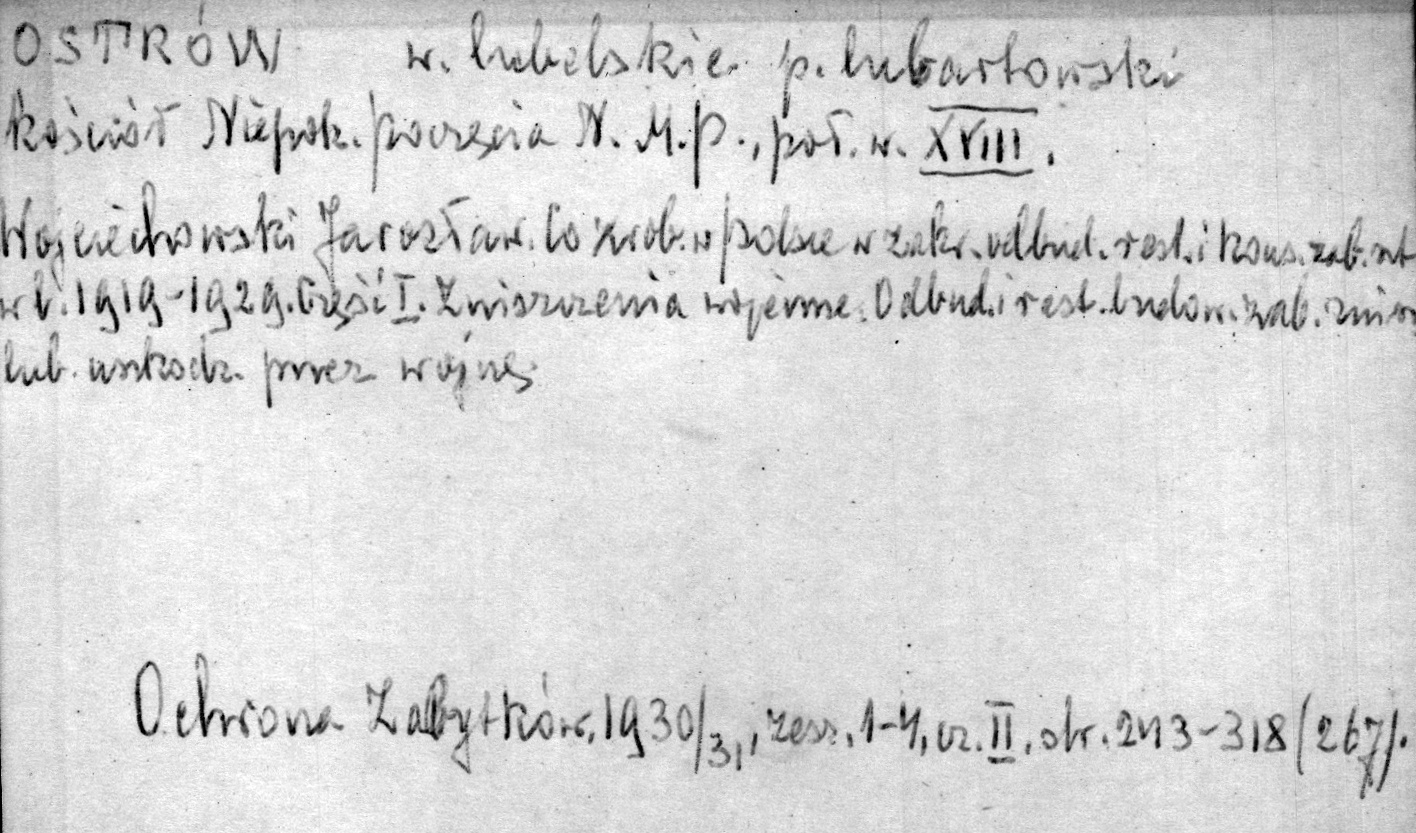 OSTRÓW w. lubelskie p. lubartowski
kościół Niepok. poczęcia N. M. P., poł. w. XVIII.
Wojciechowski Jarosław. Co zrob. w Polsce w zakr. odbud. rest. i kons. zab. szt
w l. 1919-1929. Część I. Zniszczenia wojenne. Odbud. i rest. budow. zab. zniszcz
lub. uszkodz. przez wojnę
Ochrona Zabytków, 1930/31, zesz. 1-4, cz. II, str. 243-318 (267).